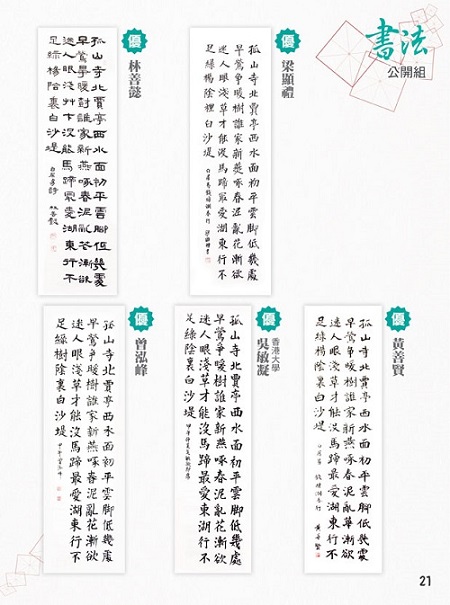 書法
公開組
優
梁顯禮
孤山寺北賈亭西水面初平雲腳低幾處
早鶯爭暖樹誰家新燕啄春泥亂花漸欲
迷人眼淺草才能沒馬蹄最愛湖東行不
足綠楊陰裡白沙堤
白居易錢塘湖春行
優
林善懿
孤山寺北賈亭西水面初平雲腳低幾處
早鶯爭暖樹誰家新燕啄春泥亂花漸欲
迷人眼淺艸才沒能馬蹄最愛湖東行不
足綠楊陰裏白沙堤
白居易詩 林善懿
優
黃善賢
孤山寺北賈亭西水面初平雲腳低幾處
早鶯爭暖樹誰家新燕啄春泥亂華漸欲
迷人眼淺草才能沒馬蹄最愛湖東行不
足綠楊陰裏白沙堤
白居易 錢塘湖春行 黃善賢
優
香港大學
吳敏凝
孤山寺北賈亭西水面初平雲腳低幾處
早鶯爭暖樹誰家新燕啄春泥亂花漸欲
迷人眼淺草才能沒馬蹄最愛東湖行不
足綠陰裏白沙堤
優
曾泓峰
孤山寺北賈亭西水面初平雲腳低幾處
早鶯爭暖樹誰家新燕啄春泥亂花漸欲
迷人眼淺草才能沒馬蹄最愛湖東行不
足綠陰裏白沙堤
21